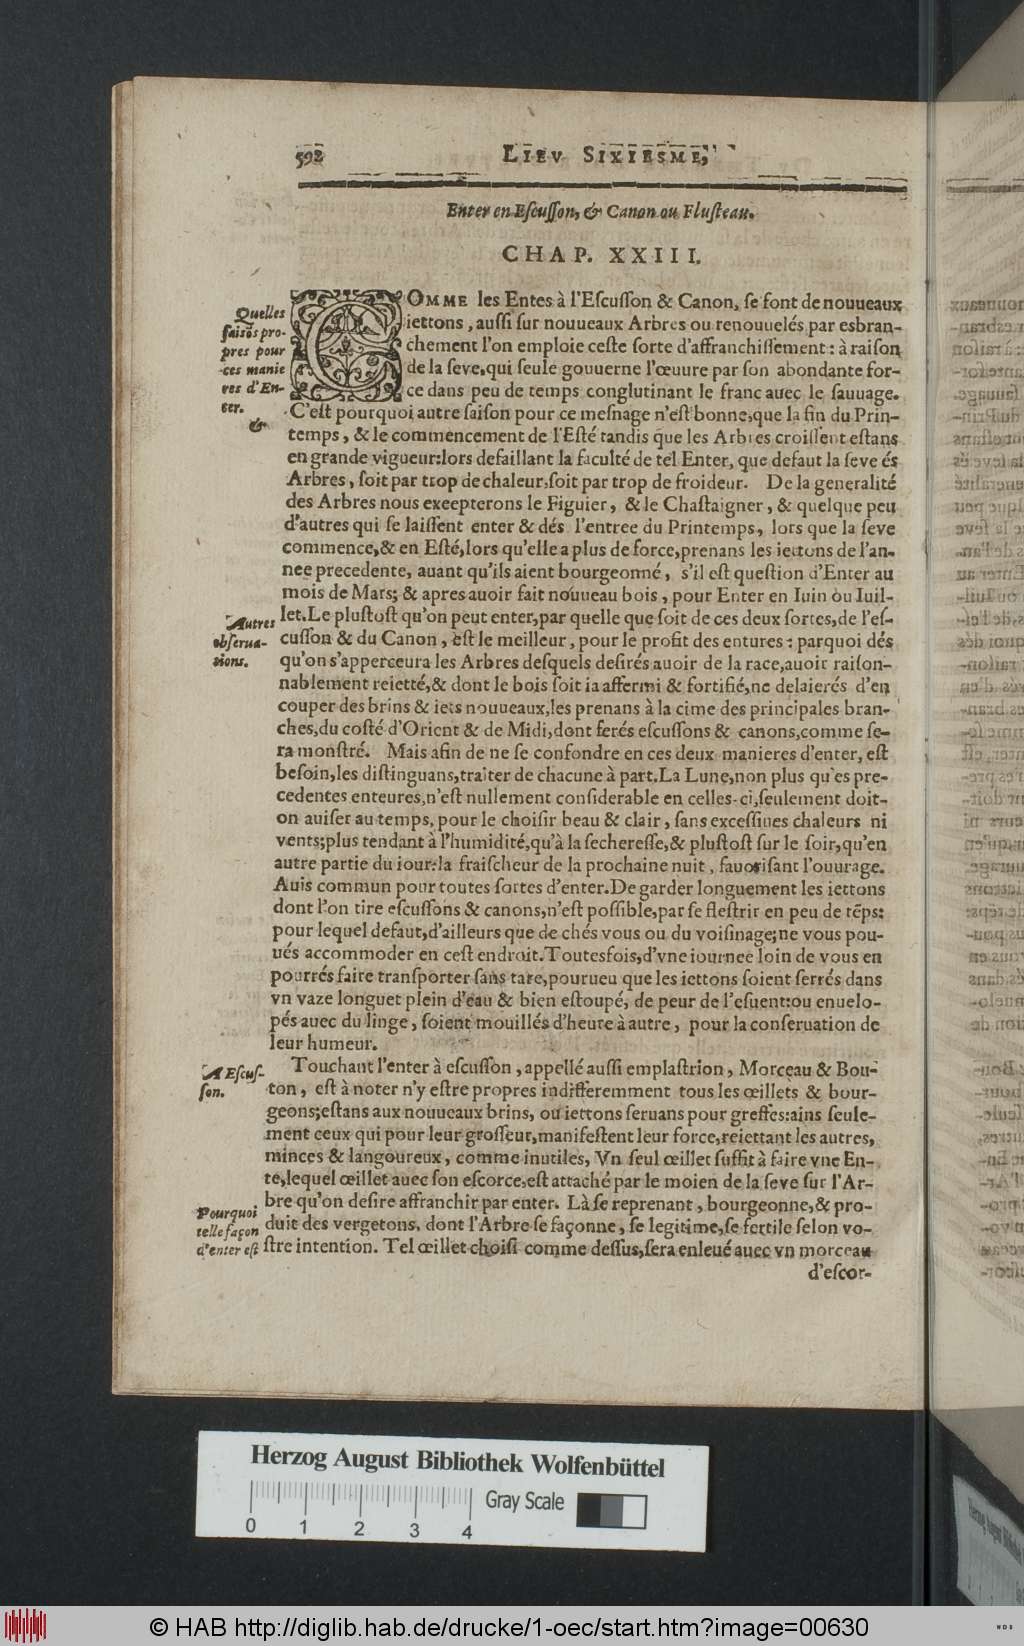 592
LIEV SIXIESME,
Enter en Escusson, & Canon ou Flusteau.
CHAP. XXIII.
Quelles
saisõs pro-
pres pour
ces manie
res d'En-
ter.
&
COMME les Entes à l'Escusson & Canon, se font de nouueaux
iettons, aussi sur nouueaux Arbres ou renouuelés par esbran-
chement l'on emploie ceste sorte d'affranchissement: à raison
de la seve, qui seule gouuerne l'œuure par son abondante for-
ce dans peu de temps conglutinant le franc auec le sauuage.
C'est pourquoi autre saison pour ce mesnage n'est bonne, que la fin du Prin-
temps, & le commencement de l'Esté tandis que les Arbres croissent estans
en grande vigueur: lors defaillant la faculté de tel Enter, que defaut la seve és
Arbres, soit par trop de chaleur, soit par trop de froideur. De la generalité
des Arbres nous exeepterons le Figuier, & le Chastaigner, & quelque peu
d'autres qui se laissent enter & dés l'entree du Printemps, lors que la seve
commence, & en Esté, lors qu'elle a plus de force, prenans les iettons de l'an-
nee precedente, auant qu'ils aient bourgeonné, s'il est question d'Enter au
mois de Mars; & apres auoir fait nouueau bois, pour Enter en Iuin ou Iuil-
let. Le plustost qu'on peut enter, par quelle que soit de ces deux sortes, de l'es-
cusson & du Canon, est le meilleur, pour le profit des entures: parquoi dés
qu'on s'apperceura les Arbres desquels desirés auoir de la race, auoir raison-
nablement reietté, & dont le bois soit ia affermi & fortifié, ne delaierés d'en
couper des brins & iets nouueaux, les prenans à la cime des principales bran-
ches, du costé d'Orient & de Midi, dont ferés escussons & canons, comme se-
ra monstré. Mais afin de ne se confondre en ces deux manieres d'enter, est
besoin, les distinguans, traiter de chacune à part. La Lune, non plus qu'es pre-
cedentes enteures, n'est nullement considerable en celles-ci, seulement doit-
on auiser au temps, pour le choisir beau & clair, sans excessiues chaleurs ni
vents; plus tendant à l'humidité, qu'à la secheresse, & plustost sur le soir, qu'en
autre partie du iour: la fraischeur de la prochaine nuit, fauorisant l'ouurage.
Auis commun pour toutes sortes d'enter. De garder longuement les iettons
dont l'on tire escussons & canons, n'est possible, par se flestrir en peu de tẽps:
pour lequel defaut, d'ailleurs que de chés vous ou du voisinage; ne vous pou-
ués accommoder en cest endroit. Toutesfois, d'vne iournee loin de vous en
pourrés faire transporter sans tare, pourueu que les iettons soient serrés dans
vn vaze longuet plein d'eau & bien estoupé, de peur de l'esuent: ou enuelo-
pés auec du linge, soient mouillés d'heure à autre, pour la conseruation de
leur humeur.
Autres
obserua-
tions.
Touchant l'enter à escusson, appellé aussi emplastrion, Morceau & Bou-
ton, est à noter n'y estre propres indifferemment tous les œillets & bour-
geons; estans aux nouueaux brins, ou iettons seruans pour greffes: ains seule-
ment ceux qui pour leur grosseur, manifestent leur force, reiettant les autres,
minces & langoureux, comme inutiles, Vn seul œillet suffit à faire vne En-
te, lequel œillet auec son escorce, est attaché par le moien de la seve sur l'Ar-
bre qu'on desire affranchir par enter. Là se reprenant, bourgeonne, & pro-
duit des vergetons, dont l'Arbre se façonne, se legitime, se fertile selon vo-
stre intention. Tel œillet choisi comme dessus, sera enleué auec vn morceau
A Escus-
son.
Pourquoi
telle façon
d'enter est
d'escor-
Herzog August Bibliothek Wolfenbüttel
0 1 2 3 4
Gray Scale
© HAB http://diglib.hab.de/drucke/1-oec/start.htm?image=00630